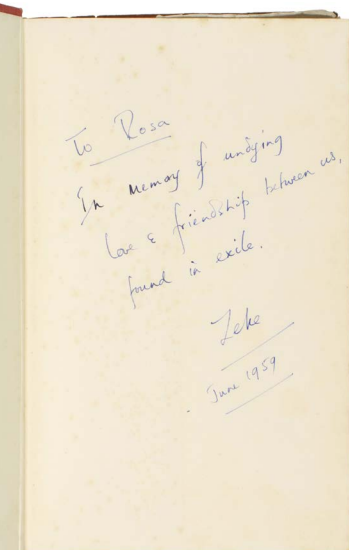 To Rosa
In memory of undying
love & friendship between us,
found in exile.
Zeke
June 1959